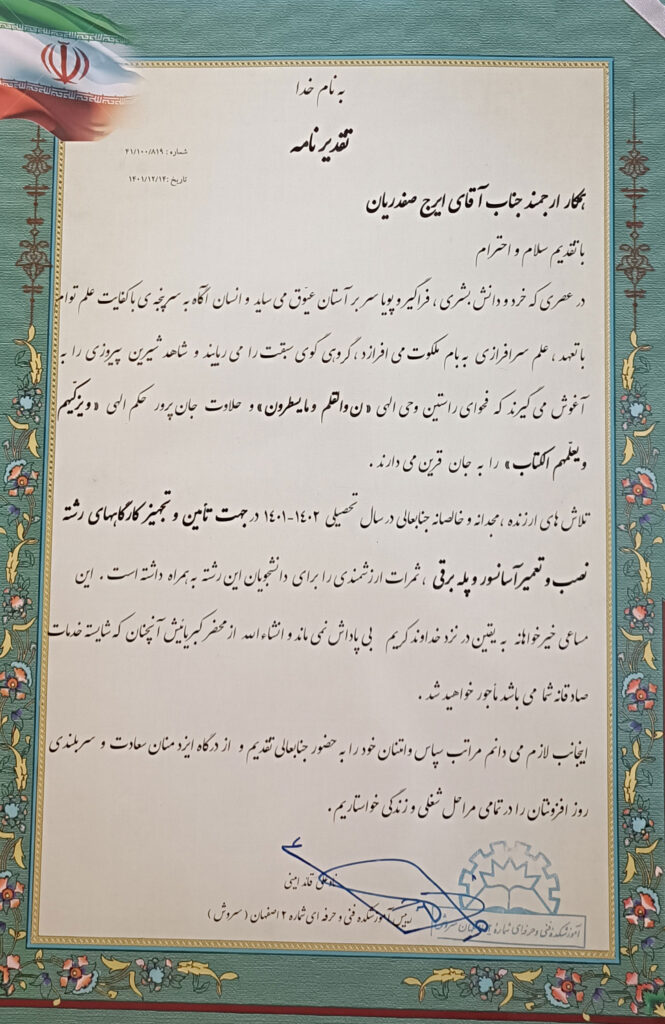 به نام خدا
تقدیر نامه
شماره : ۴۱/۱۰۰/۸۱۹
تاریخ :۱۴۰۱/۱۲/۱۴
همکار ارجمند جناب آقای ایرج صفدریان
با تقدیم سلام و احترام
در عصری که خرد و دانش بشری ، فراگیر و پویا سر بر آستان عیوق می ساید و انسان آگاه به سرپنجه ی با کفایت علم توام
با تعهد ، علم سرافرازی به بام ملکوت می افرازد ، گروهی گوی سبقت را می ربایند و شاهد شیرین پیروزی را به
آغوش می گیرند که فحوای راستین وحی الهی «ن والقلم و مایسطرون» و حلاوت جان پرور حکم الهی «ویزکّیهم
ویعلّمهم الکتاب» را به جان قرین می دارند .
تلاش های ارزنده ،مجدانه و خالصانه جنابعالی در سال تحصیلی ۱۴۰۲-۱۴۰۱ در جهت تأمین و تجهیز کارگاههای رشته
نصب و تعمیر آسانسور و پله برقی ، ثمرات ارزشمندی را برای دانشجویان این رشته به همراه داشته است . این
مساعی خیرخواهانه به یقین در نزد خداوند کریم بی پاداش نمی ماند و انشاءالله از محضر کبریائیش آنچنان که شایسته خدمات
صادقانه شما می باشد مأجور خواهید شد .
اینجانب لازم می دانم مراتب سپاس وامتنان خود را به حضور جنابعالی تقدیم و از درگاه ایزد منان سعادت و سربلندی
روز افزونتان را در تمامی مراحل شغلی و زندگی خواستاریم .
قائد امینی
رییس آموزشکده فنی و حرفه ای شماره ۲ اصفهان ( سروش )
آموزشکده فنی و حرفه ای شماره اصفهان سروش